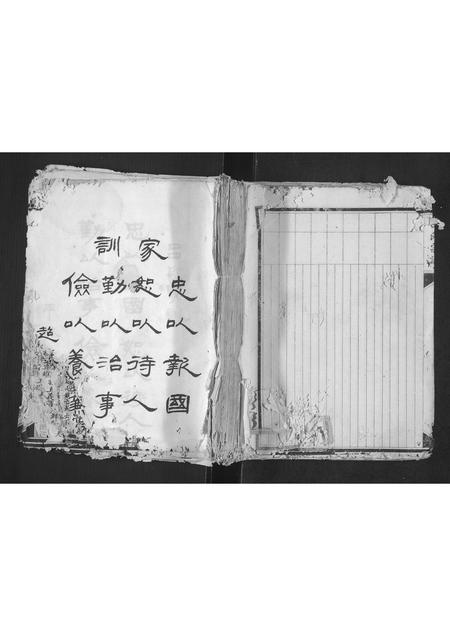 家訓
忠以報國
恕以待人
勤以治事
儉以養廉
超